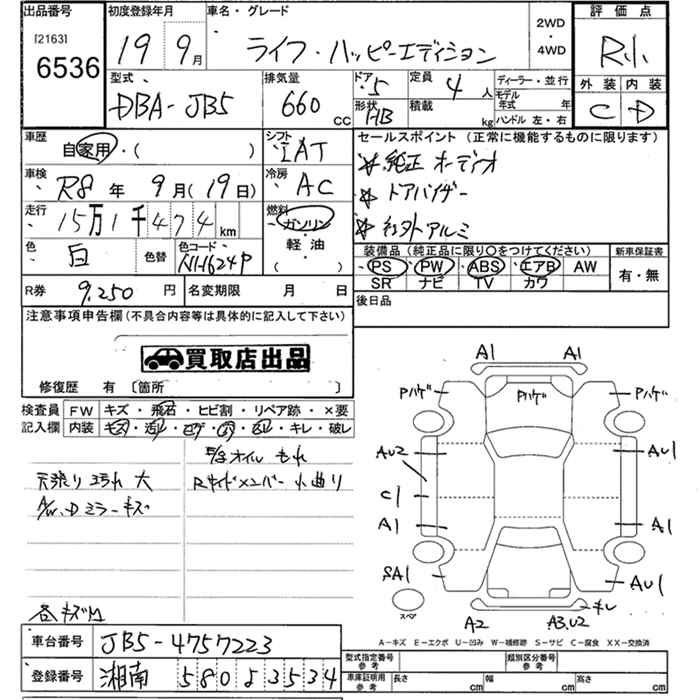 出品番号 初度登録年月 車名・グレード 2WD・4WD 評価点
[2163] 6536 19 9月 ライフ・ハッピーエディション R小
型式 排気量 ドア 5 定員 4人 ディーラー・並行 外装 内装
DBA-JB5 660 CC 形状 HB 積載 kg モデル年式 年 ハンドル 左・右 C D
車歴 自家用・( ) シフト IAT セールスポイント(正常に機能するものに限ります)
車検 R8年 9月(19日) 冷房 AC ☆純正オーディオ
走行 15万1千474km 燃料 ガソリン・軽油( ) ☆ドアバイザー
色 白 色替 色コード NH624P ☆社外アルミ
装備品(純正品に限り○をつけてください) 新車保証書
PS PW ABS エアB AW 有・無
SR ナビ TV カワ
R券 9,250円 名変期限 月 日 後日品
注意事項申告欄(不具合内容等は具体的に記入して下さい)
買取店出品
修復歴 有 〔箇所 〕
検査員記入欄 FW キズ・飛石・ヒビ割・リペア跡・×要
内装 キレ・破レ
オイルもれ
天張り 汚れ 大 Rサイドメンバー 小曲り
ミラーキズ
A1 A1
Pハゲ Pハゲ Pハゲ
AU2 AU1
C1
A1 A1
SA1 AU1
スペア A2 A3,U2 キレ
各キズ凹
A-キズ E-エクボ U-凹み W-補修跡 S-サビ C-腐食 XX-交換済
車台番号 JB5-4757223
登録番号 湘南 580 よ 3534
型式指定番号 参考 類別区分番号 参考
車庫証明用 参考 長さ cm 幅 cm 高さ cm